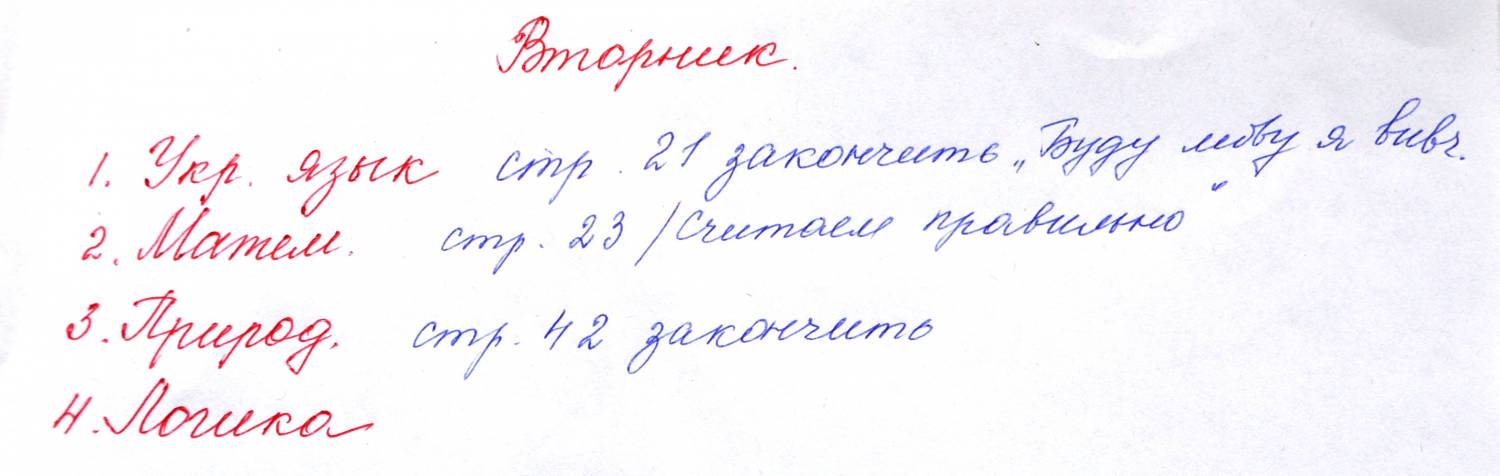 Вторник.
1. Укр. язык стр. 21 закончить „Буду мову я вивч.
2. Матем. стр. 23 /Считаем правильно“
3. Природ. стр. 42 закончить
4. Логика